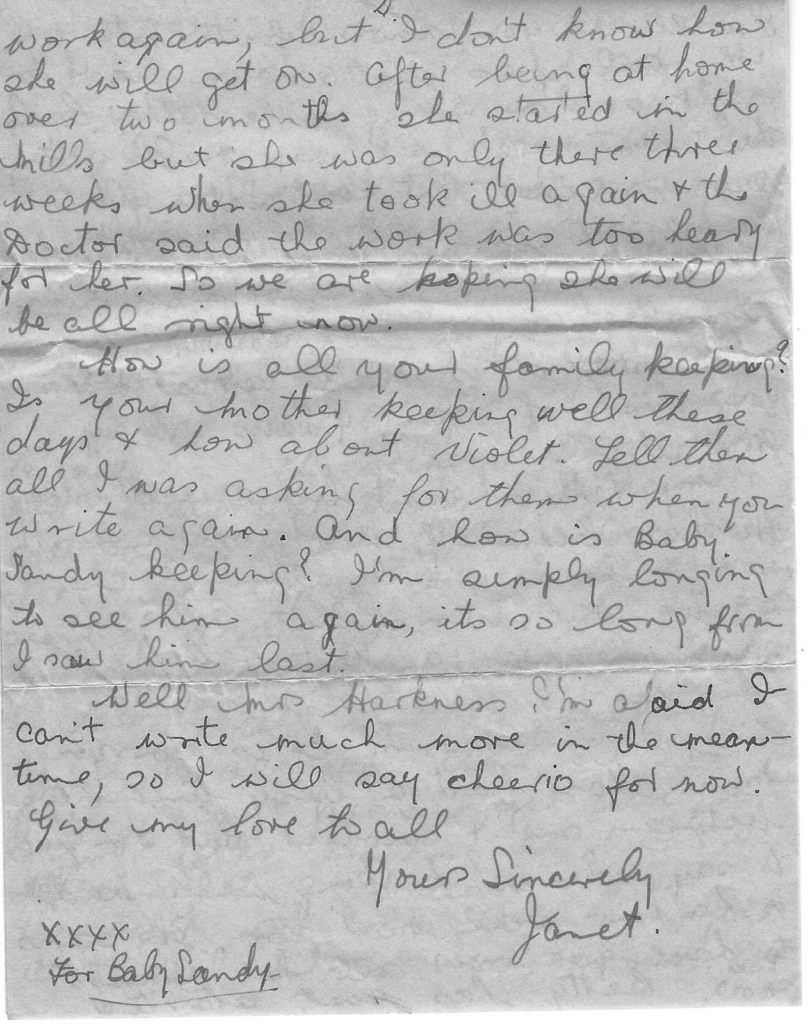 work again, but I don't know how
she will get on. After being at home
over two months she started in the
mills but she was only there three
weeks when she took ill again & the
Doctor said the work was too heavy
for her. So we are hoping she will
be all right now.
How is all your family keeping?
Is your mother keeping well these
days & how about Violet. Tell them
all I was asking for them when you
write again. And how is Baby
Sandy keeping? I'm simply longing
to see him again, its so long from
I saw him last.
Well Mrs Harkness I'm afraid I
can't write much more in the mean-
time, so I will say cheerio for now.
Give my love to all
Yours Sincerely
Janet.
XXXX
For Baby Sandy